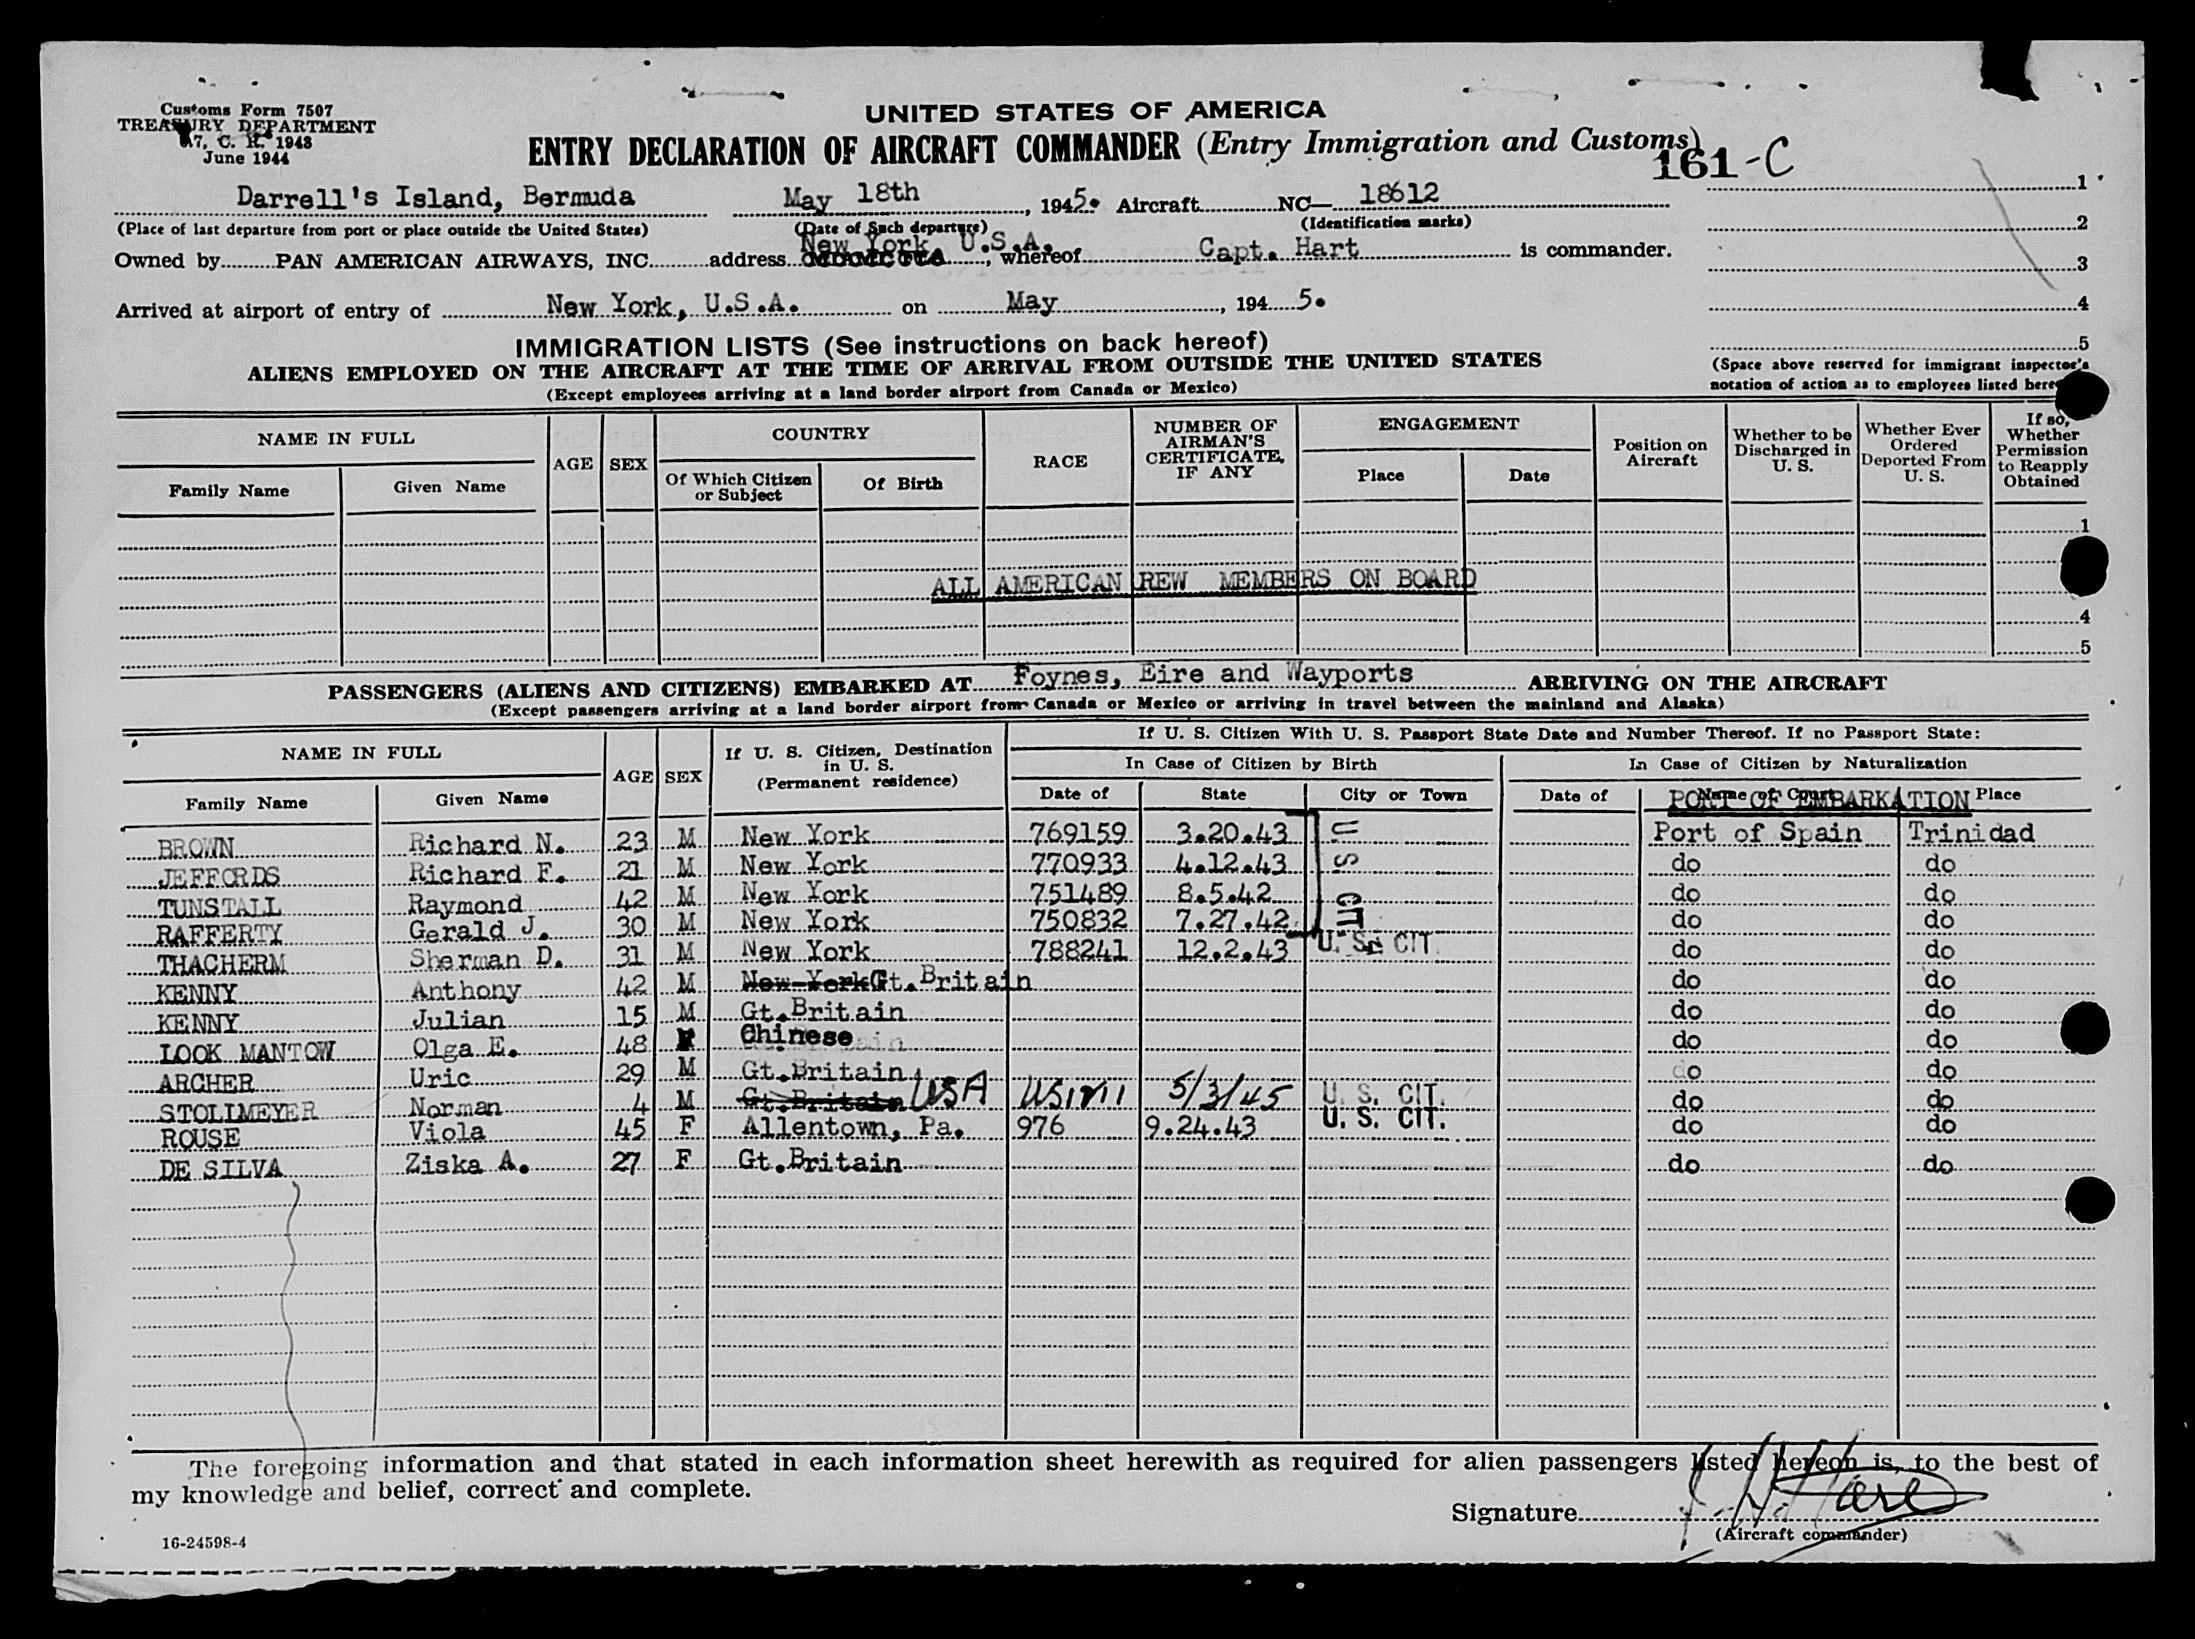 Customs Form 7507
TREASURY DEPARTMENT
7, C. R. 1943
June 1944
UNITED STATES OF AMERICA
ENTRY DECLARATION OF AIRCRAFT COMMANDER (Entry Immigration and Customs)
161-C
Darrell's Island, Bermuda May 18th, 1945. Aircraft NC— 18612
(Place of last departure from port or place outside the United States) (Date of Such departure) (Identification marks)
New York, U.S.A.
Owned by PAN AMERICAN AIRWAYS, INC. address, whereof Capt. Hart is commander.
Arrived at airport of entry of New York, U.S.A. on May, 1945.
1
2
3
4
5
(Space above reserved for immigrant inspector's
notation of action as to employees listed
IMMIGRATION LISTS (See instructions on back hereof)
ALIENS EMPLOYED ON THE AIRCRAFT AT THE TIME OF ARRIVAL FROM OUTSIDE THE UNITED STATES
(Except employees arriving at a land border airport from Canada or Mexico)
NAME IN FULL AGE SEX COUNTRY RACE NUMBER OF AIRMAN'S CERTIFICATE, IF ANY ENGAGEMENT Position on Aircraft Whether to be Discharged in U. S. Whether Ever Ordered Deported From U. S. If so, Whether Permission to Reapply Obtained
Family Name Given Name Of Which Citizen or Subject Of Birth Place Date
1
ALL AMERICAN REW MEMBERS ON BOARD
4
5
PASSENGERS (ALIENS AND CITIZENS) EMBARKED AT Foynes, Eire and Wayports ARRIVING ON THE AIRCRAFT
(Except passengers arriving at a land border airport from Canada or Mexico or arriving in travel between the mainland and Alaska)
NAME IN FULL AGE SEX If U. S. Citizen, Destination in U. S. (Permanent residence) If U. S. Citizen With U. S. Passport State Date and Number Thereof. If no Passport State:
In Case of Citizen by Birth In Case of Citizen by Naturalization
Family Name Given Name Date of State City or Town Date of Name of Court Place
PORT OF EMBARKATION
BROWN Richard N. 23 M New York 769159 3.20.43 U S CIT Port of Spain Trinidad
JEFFORDS Richard F. 21 M New York 770933 4.12.43 do do
TUNSTALL Raymond 42 M New York 751489 8.5.42 do do
RAFFERTY Gerald J. 30 M New York 750832 7.27.42 do do
THACHERM Sherman D. 31 M New York 788241 12.2.43 U. S. CIT. do do
KENNY Anthony 42 M New York Gt.Britain do do
KENNY Julian 15 M Gt.Britain do do
LOOK MANTOW Olga E. 48 F Chinese do do
ARCHER Uric 29 M Gt.Britain do do
STOLLMEYER Norman 4 M Gt.Britain USA 5/3/45 U. S. CIT. do do
ROUSE Viola 45 F Allentown, Pa. 976 9.24.43 U. S. CIT. do do
DE SILVA Ziska A. 27 F Gt.Britain do do
The foregoing information and that stated in each information sheet herewith as required for alien passengers listed hereon is, to the best of
my knowledge and belief, correct and complete.
Signature
(Aircraft commander)
16-24598-4